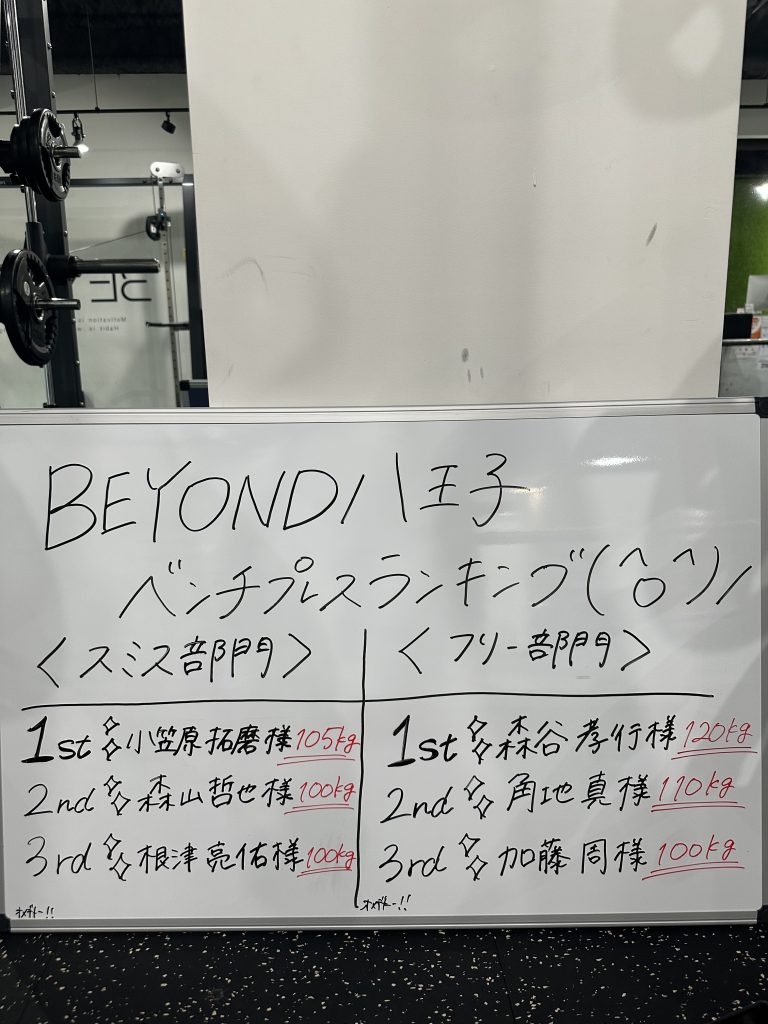 Motivation is
Habit is
BEYOND八王子
ベンチプレスランキング(^o^)/
〈スミス部門〉
1st 小笠原拓磨様 105kg
2nd 森山哲也様 100kg
3rd 根津亮佑様 100kg
オメデトー!!
〈フリー部門〉
1st 森谷孝行様 120kg
2nd 角地真様 110kg
3rd 加藤周様 100kg
オメデトー!!